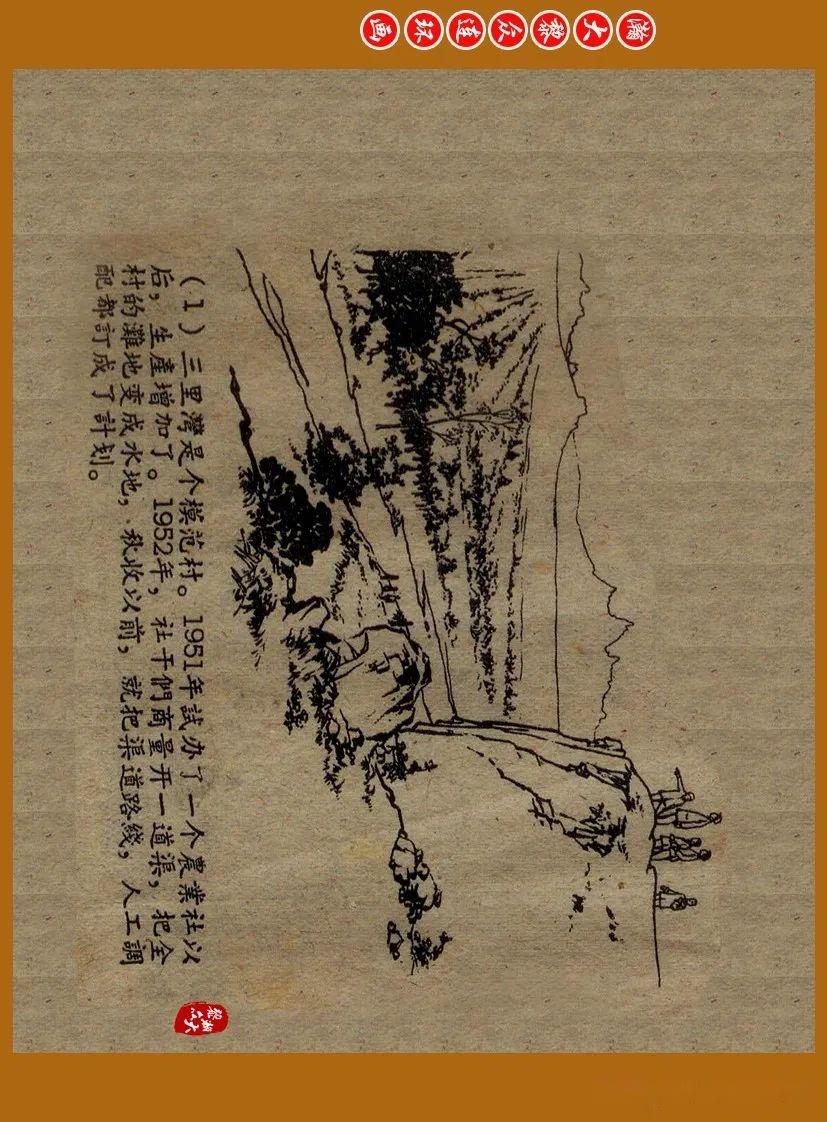 瀚大黎众连环画
（1）三里灣是个模范村。1951年試办了一个農業社以
后，生產增加了。1952年，社干們商量开一道渠，把全
村的灘地变成水地，秋收以前，就把渠道路綫，人工調
配都訂成了計划。
瀚大
黎众